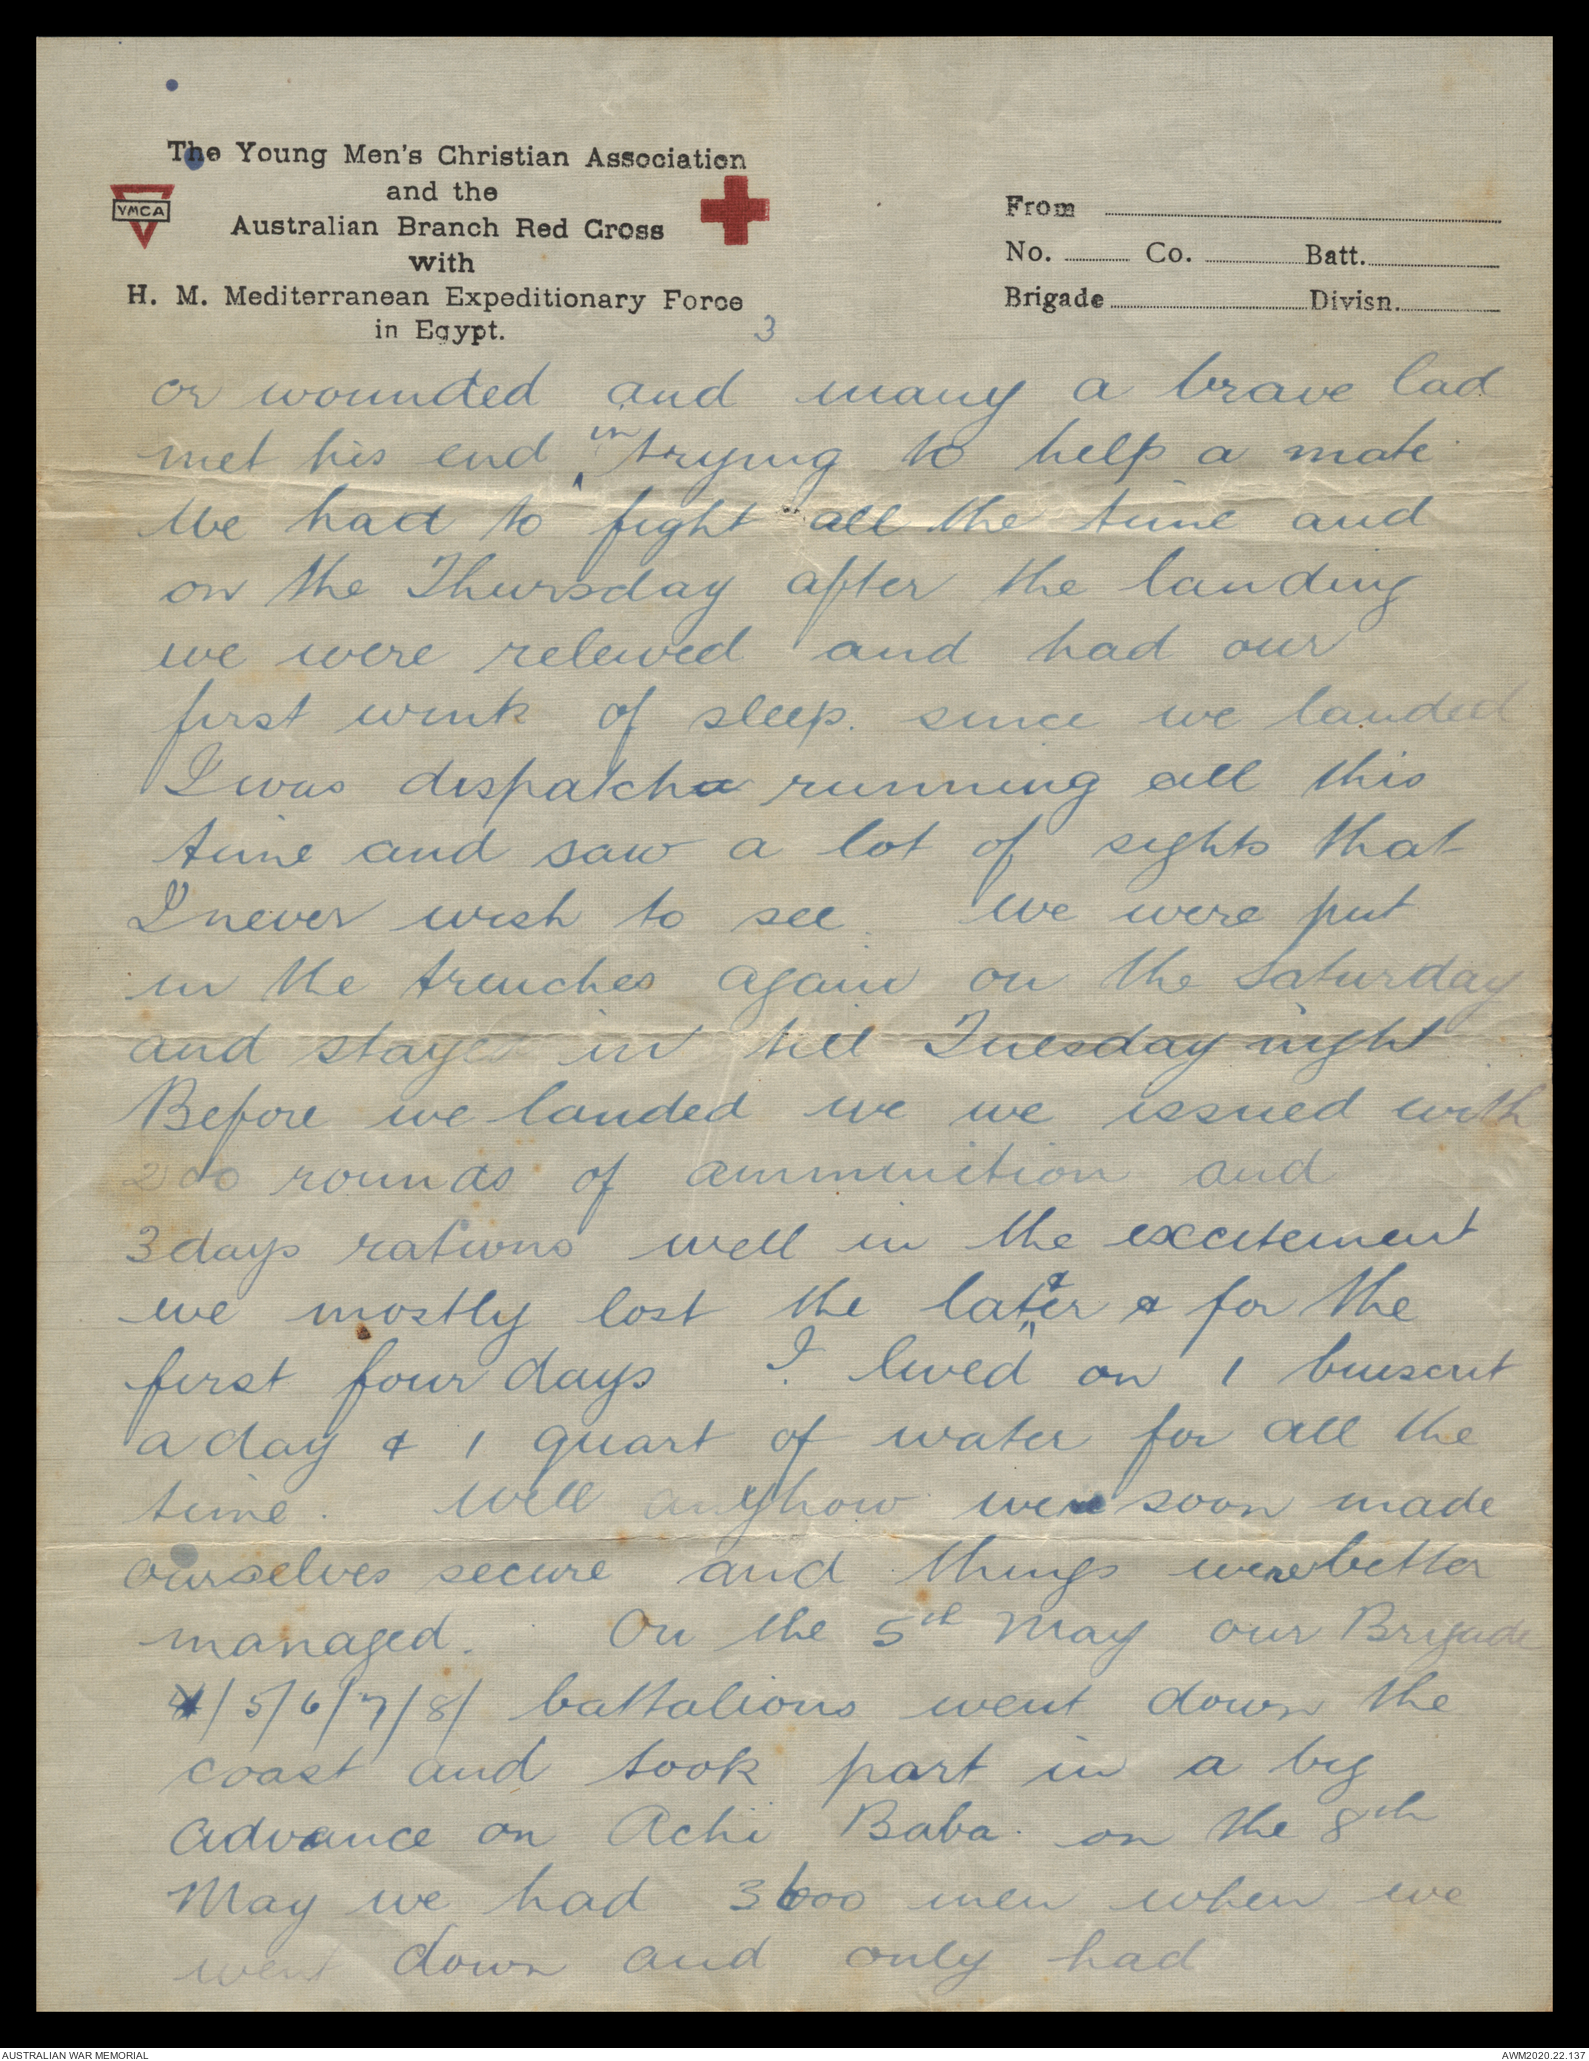 The Young Men's Christian Association
and the
Australian Branch Red Cross
with
H. M. Mediterranean Expeditionary Force
in Egypt.
YMCA
From
No. Co. Batt.
Brigade Divisn.
3
or wounded and many a brave lad
met his end in trying to help a mate
We had to fight all the time and
on the Thursday after the landing
we were releived and had our
first wink of sleep. since we landed
I was dispatch running all this
time and saw a lot of sights that
I never wish to see. We were put
in the trenches again on the Saturday
and stayed in till Tuesday night
Before we landed we we issued with
200 rounds of ammunition and
3 days rations well in the excitement
we mostly lost the latter & for the
first four days I lived on 1 buiscut
a day & 1 quart of water for all the
time. Well anyhow we soon made
ourselves secure and things were better
managed. On the 5th May our Brigade
/5/6/7/8/ battalions went down the
coast and took part in a big
advance on Achi Baba. on the 8th
May we had 3600 men when we
went down and only had
AUSTRALIAN WAR MEMORIAL
AWM2020.22.137